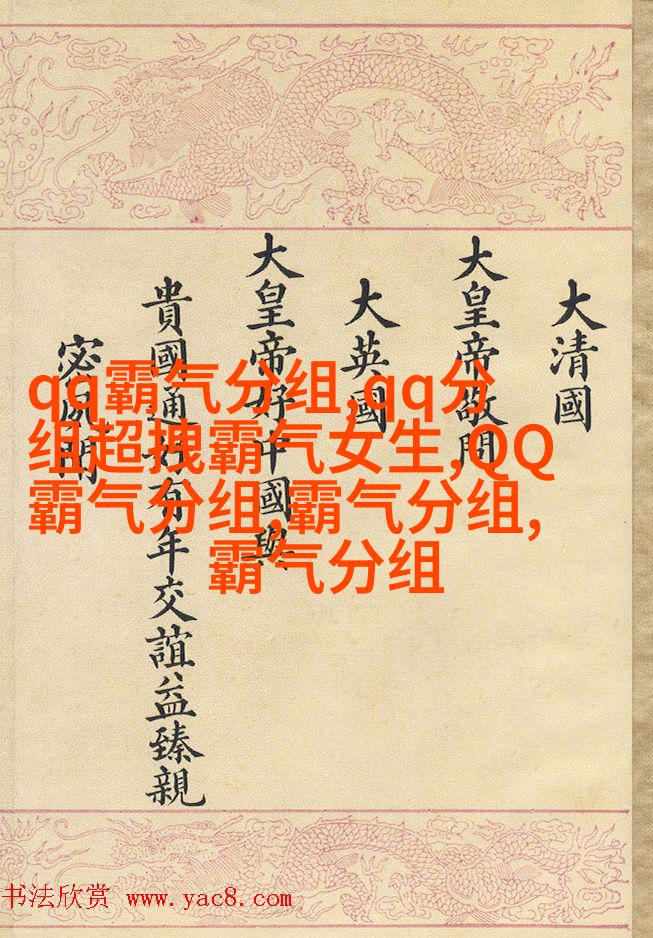 大清國
大皇帝敬問
大英國
大皇帝好中國與
貴國通好有年交誼益臻親
宻夙聞
qq霸气分组,qq分
组超拽霸气女生,QQ
霸气分组,霸气分组,
霸气分组
书法欣赏 www.yac8.com